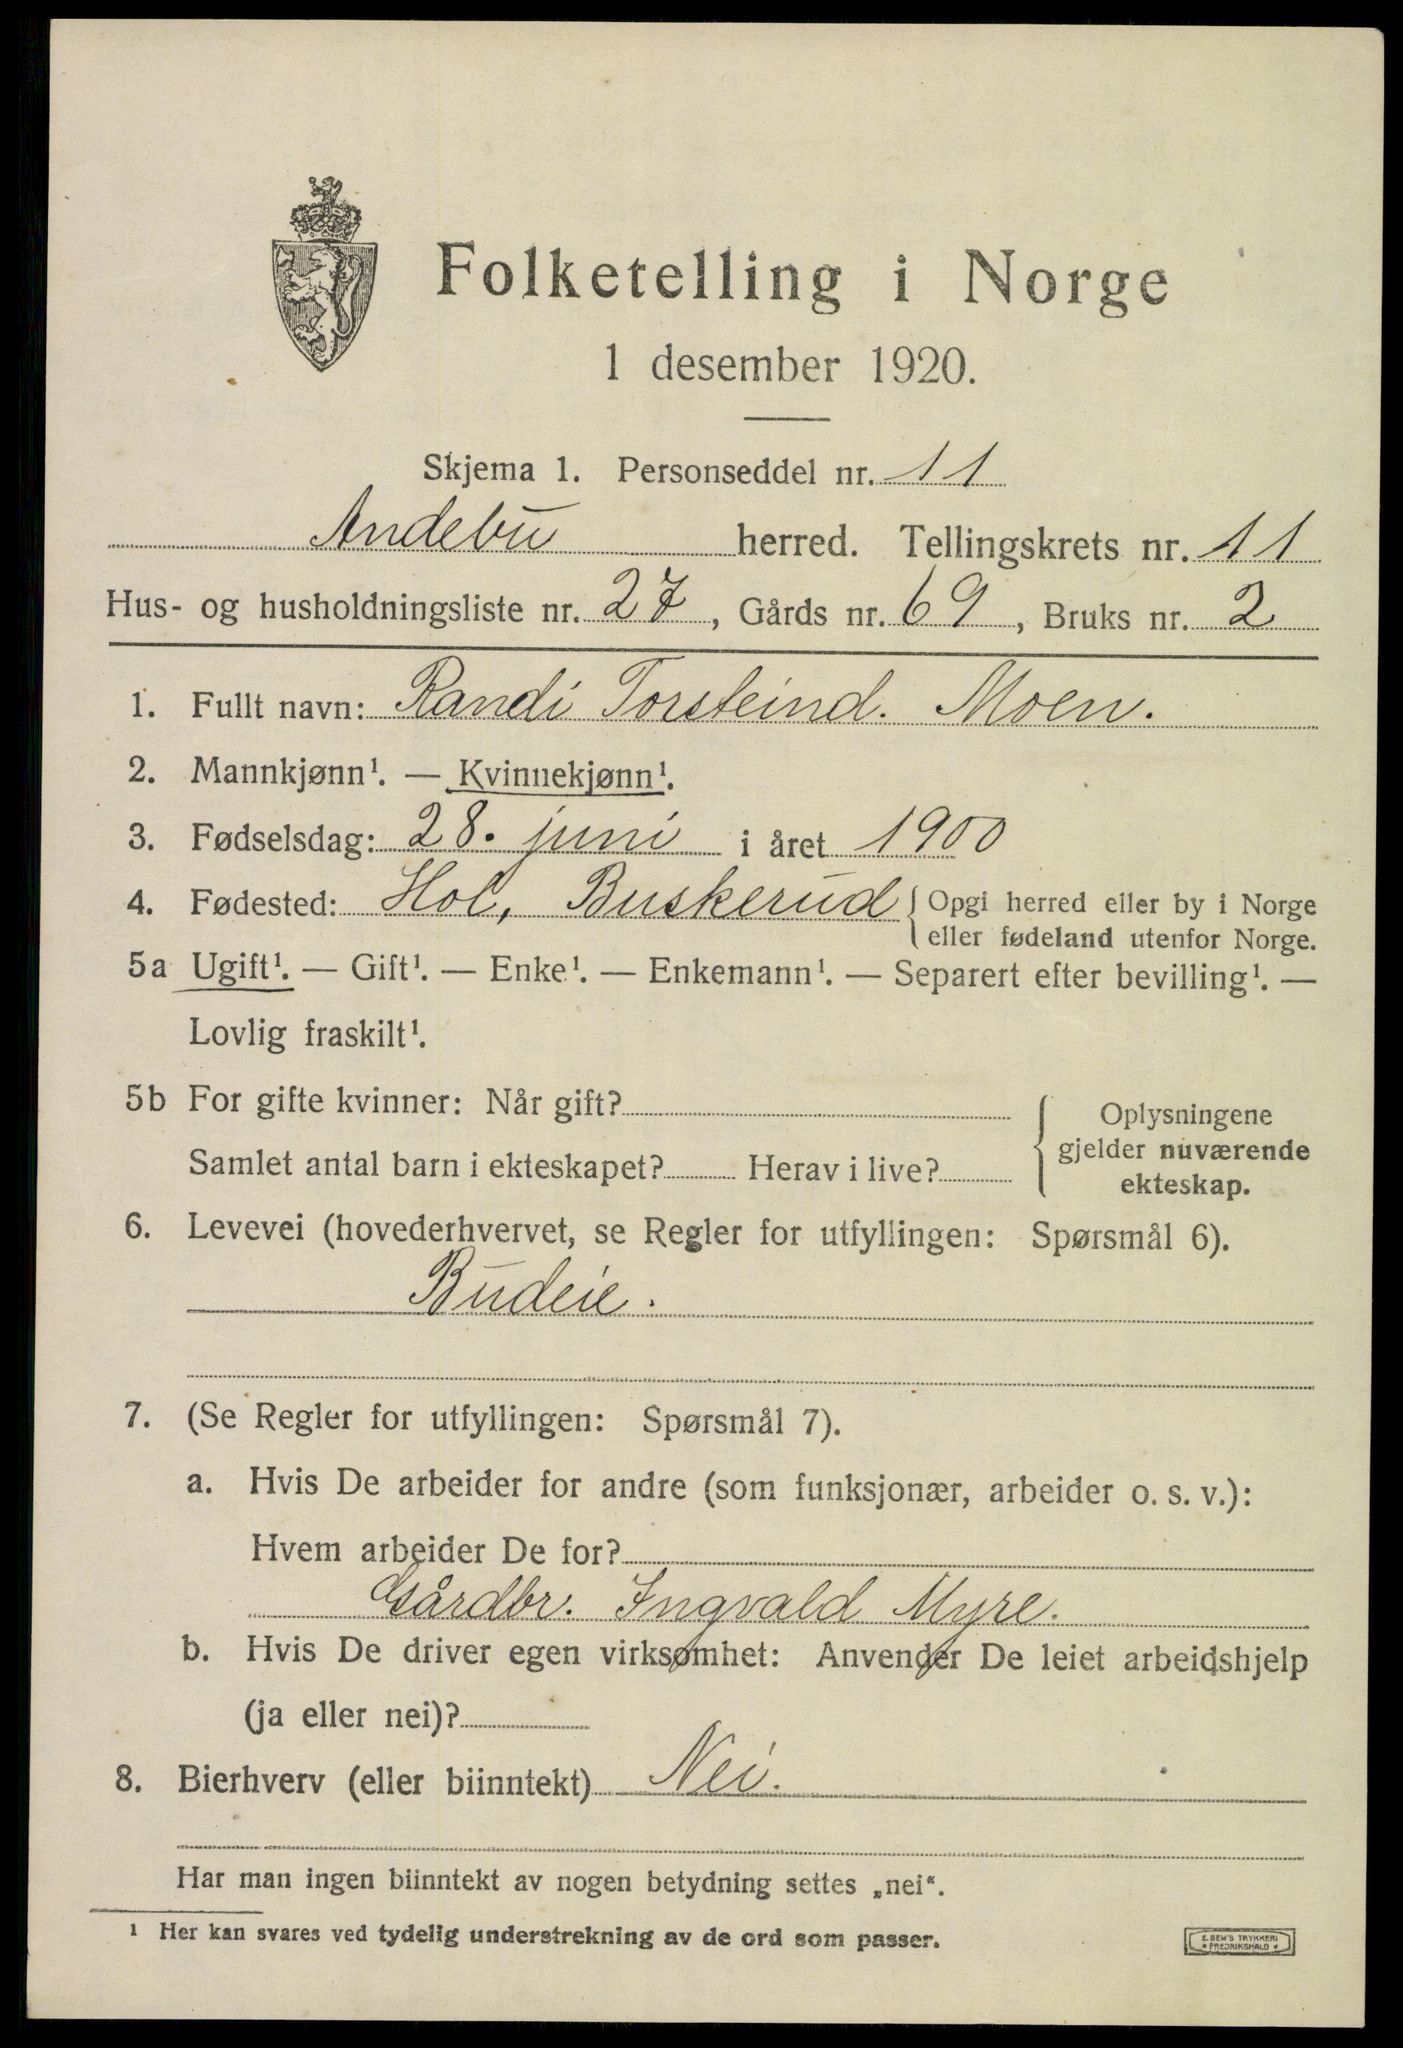 Folketelling i Norge
1 desember 1920.
Skjema 1. Personseddel nr. 11
Andebu herred. Tellingskrets nr. 11
Hus- og husholdningsliste nr. 27, Gårds nr. 69, Bruks nr. 2
1. Fullt navn: Randi Torsteind. Moen.
2. Mannkjønn¹. — Kvinnekjønn¹.
3. Fødselsdag: 28. juni i året 1900
4. Fødested: Hol, Buskerud { Opgi herred eller by i Norge
eller fødeland utenfor Norge.
5a Ugift¹. — Gift¹. — Enke¹. — Enkemann¹. — Separert efter bevilling¹. —
Lovlig fraskilt¹.
5b For gifte kvinner: Når gift?
Samlet antal barn i ekteskapet? Herav i live?
{ Oplysningene
gjelder nuværende
ekteskap.
6. Levevei (hovederhvervet, se Regler for utfyllingen: Spørsmål 6).
Budeie.
7. (Se Regler for utfyllingen: Spørsmål 7).
a. Hvis De arbeider for andre (som funksjonær, arbeider o. s. v.):
Hvem arbeider De for?
Gårdbr. Ingvald Myre.
b. Hvis De driver egen virksomhet: Anvender De leiet arbeidshjelp
(ja eller nei)?
8. Bierhverv (eller biinntekt) Nei.
Har man ingen biinntekt av nogen betydning settes „nei“.
¹ Her kan svares ved tydelig understrekning av de ord som passer.
E. SEM'S TRYKKERI
FREDRIKSHALD